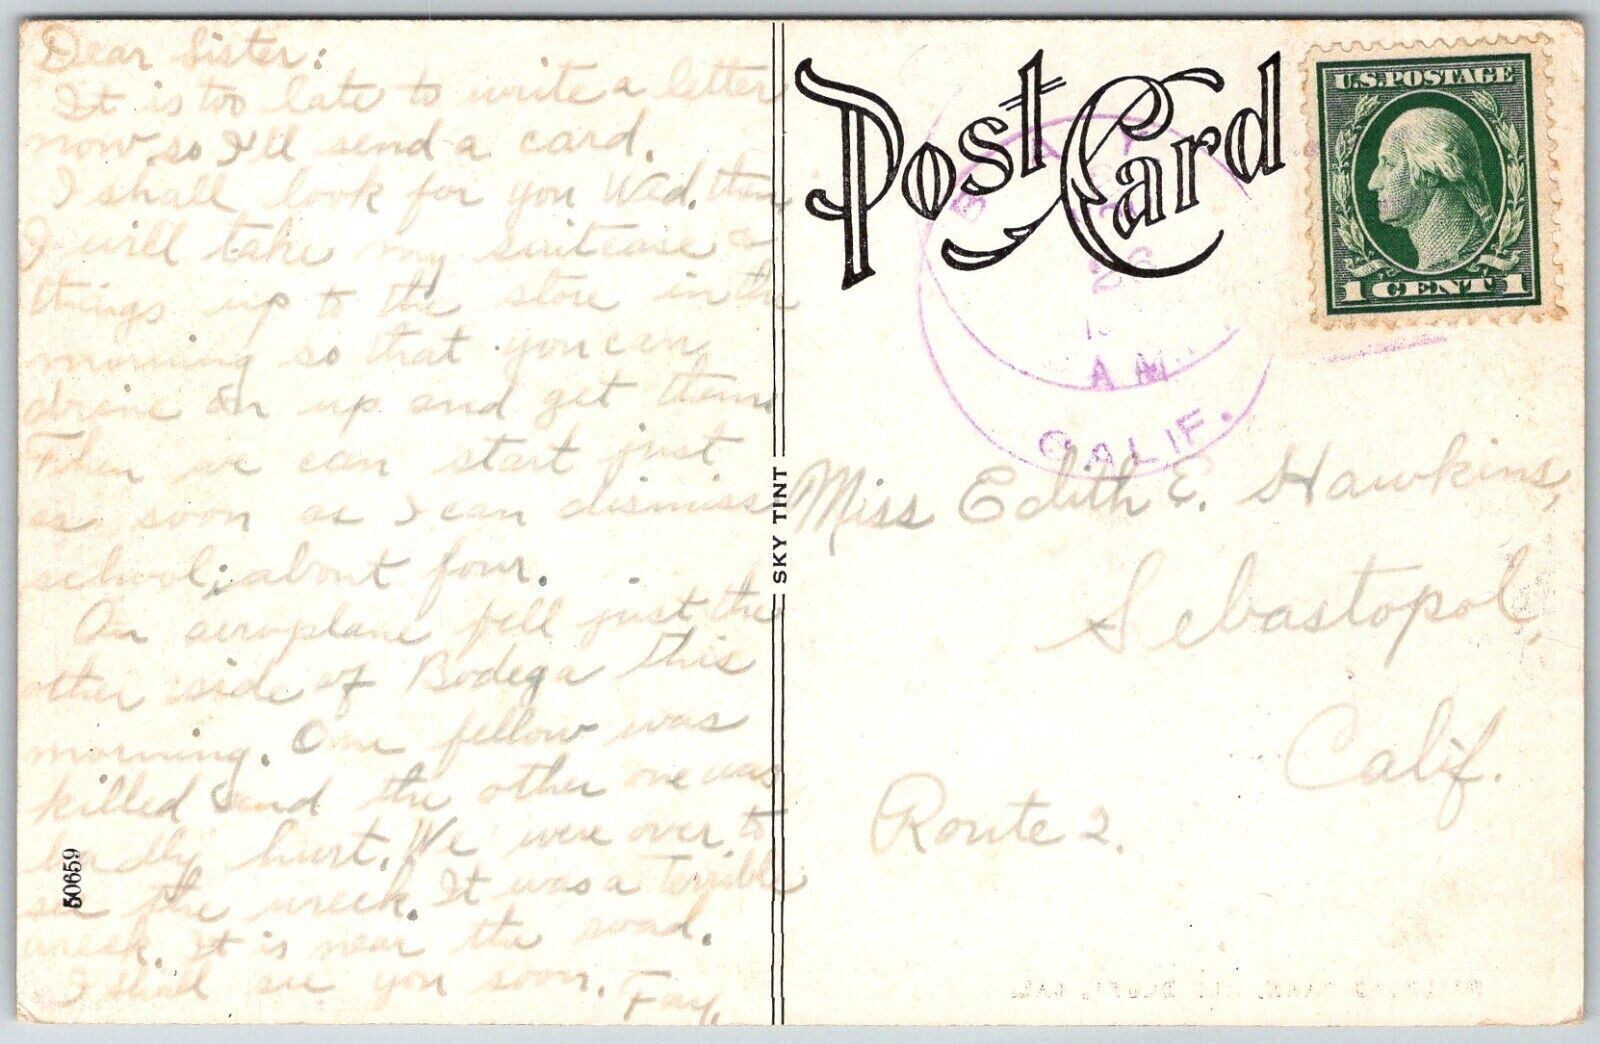 Dear Sister:
It is too late to write a letter
now so I'll send a card.
I shall look for you Wed. then
I will take my suitcase &
things up to the store in the
morning so that you can
drive on up and get them.
Then we can start just
as soon as I can dismiss
school; about four.
An aeroplane fell just the
other side of Bodega this
morning. One fellow was
killed and the other one was
badly hurt. We were over to
see the wreck. It was a terrible
wreck. It is near the road.
I shall see you soon.
Fay.
50659
SKY TINT
Post Card
U.S. POSTAGE
1 CENT 1
BAY
26
A M
CALIF.
Miss Edith E. Hawkins,
Sebastopol,
Calif.
Route 2.